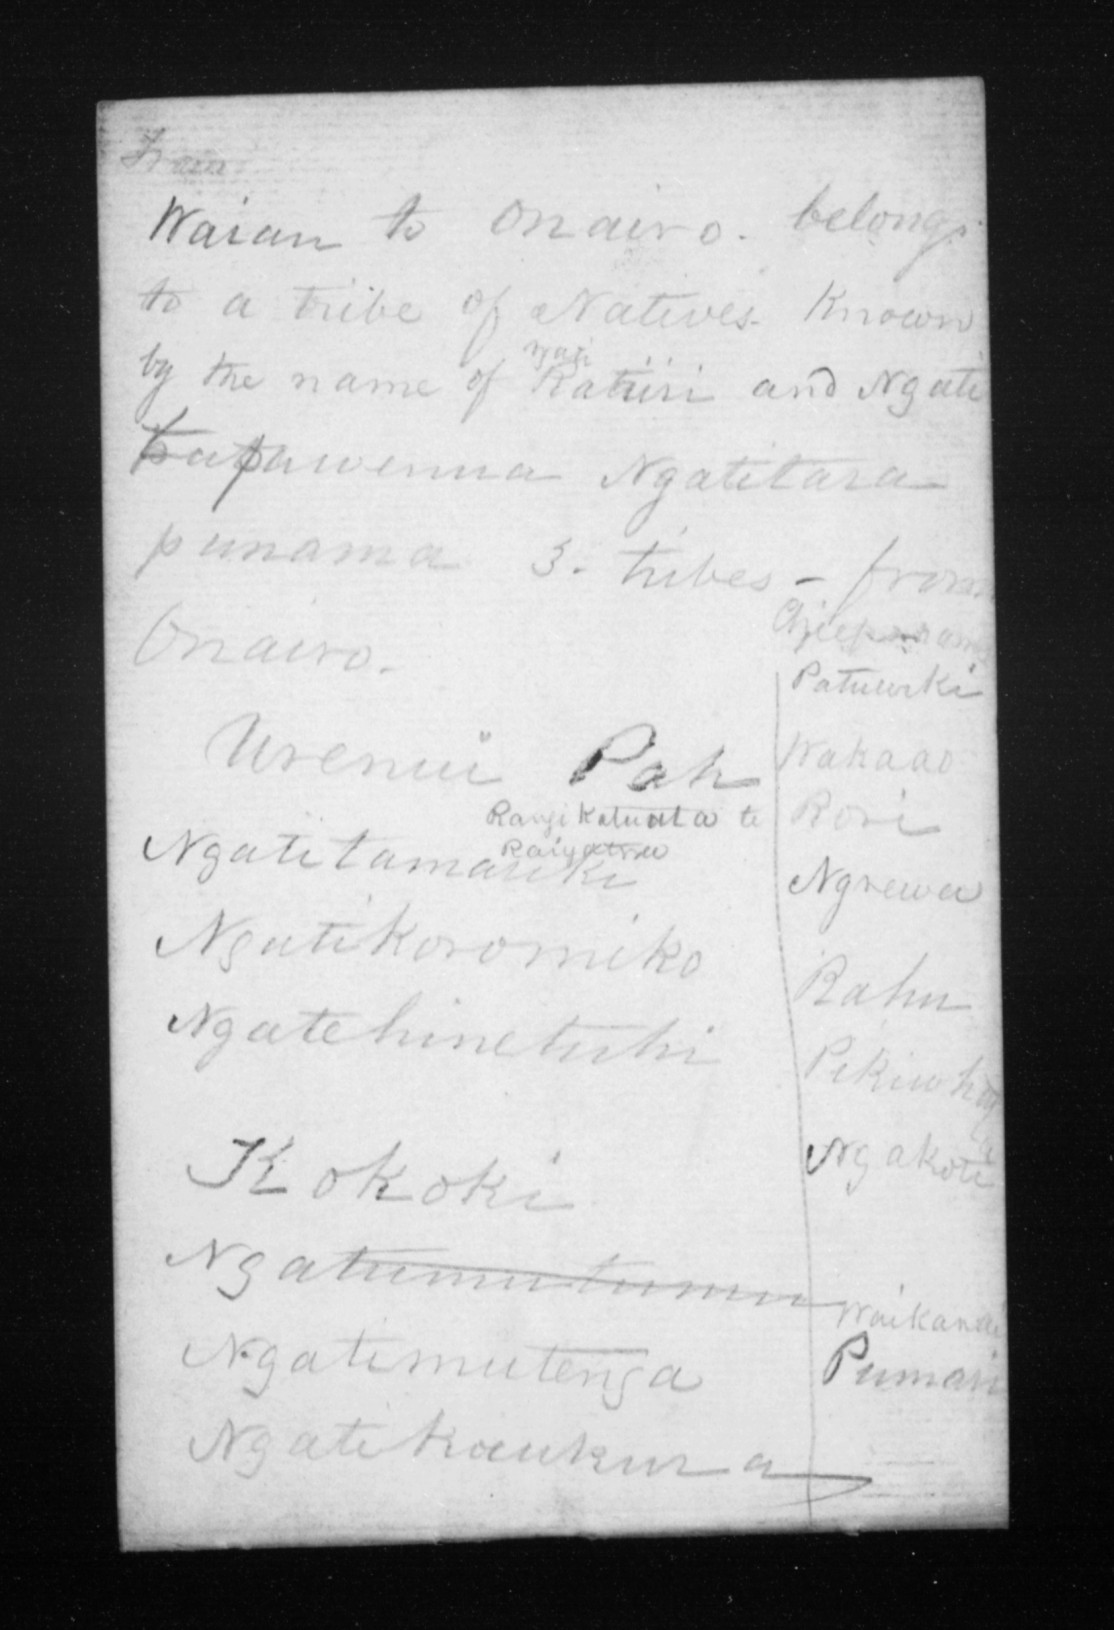 From
Waiau to Onairo. belongs
to a tribe of Natives. Known
by the name of Ngati Ratiiri and Ngati
tupawenua Ngatitara
punama 3. tribes - from
Onairo.
Urenui Pah
Rangi Katuata te
Ngatitamariki
Ngatikoromiko
Ngatehinetuhi
Kokoki
Ngatumutumu
Ngatimutenga
Ngatikaukura
Patuwiki
Wakaao
Rori
Ngrewa
Rahu
Pikiwhaga
Ngakoti
Waikanai
Pumari